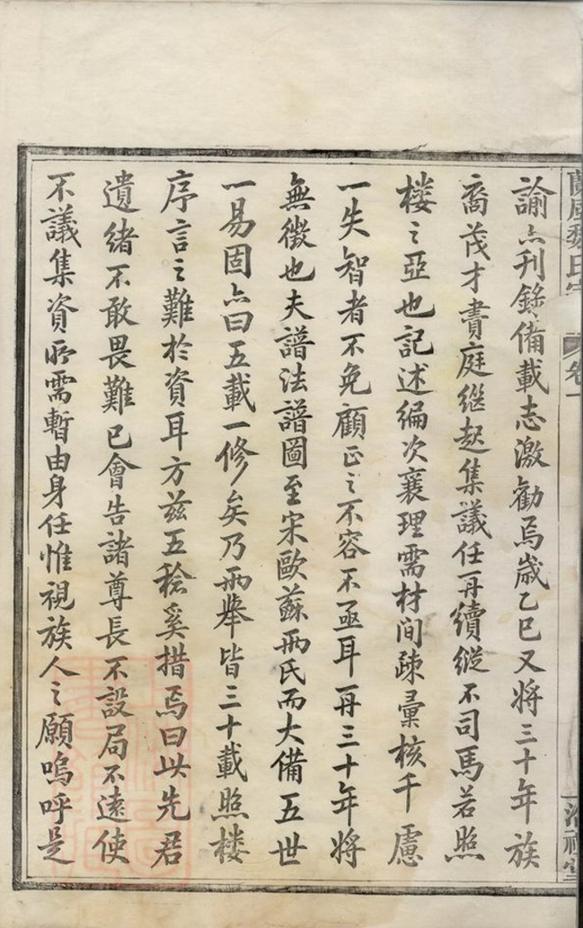 諭亦刋錄備載志激勸焉歲乙巳又將三十年族
裔茂才賣庭继起集議任再續縱不司馬若照
楼之亞也記述编次襄理需材间疎彙核千慮
一失智者不免顧正之不容不亟耳再三十年將
無徵也夫譜法譜圖至宋歐蘇兩氏而大備五世
一易固亦曰五載一修矣乃兩舉皆三十載照楼
序言之難於資耳方兹五稔奚措焉曰此先君
遺绪不敢畏難已會告諸尊長不設局不遠使
不議集資所需暫由身任惟視族人之願嗚呼是